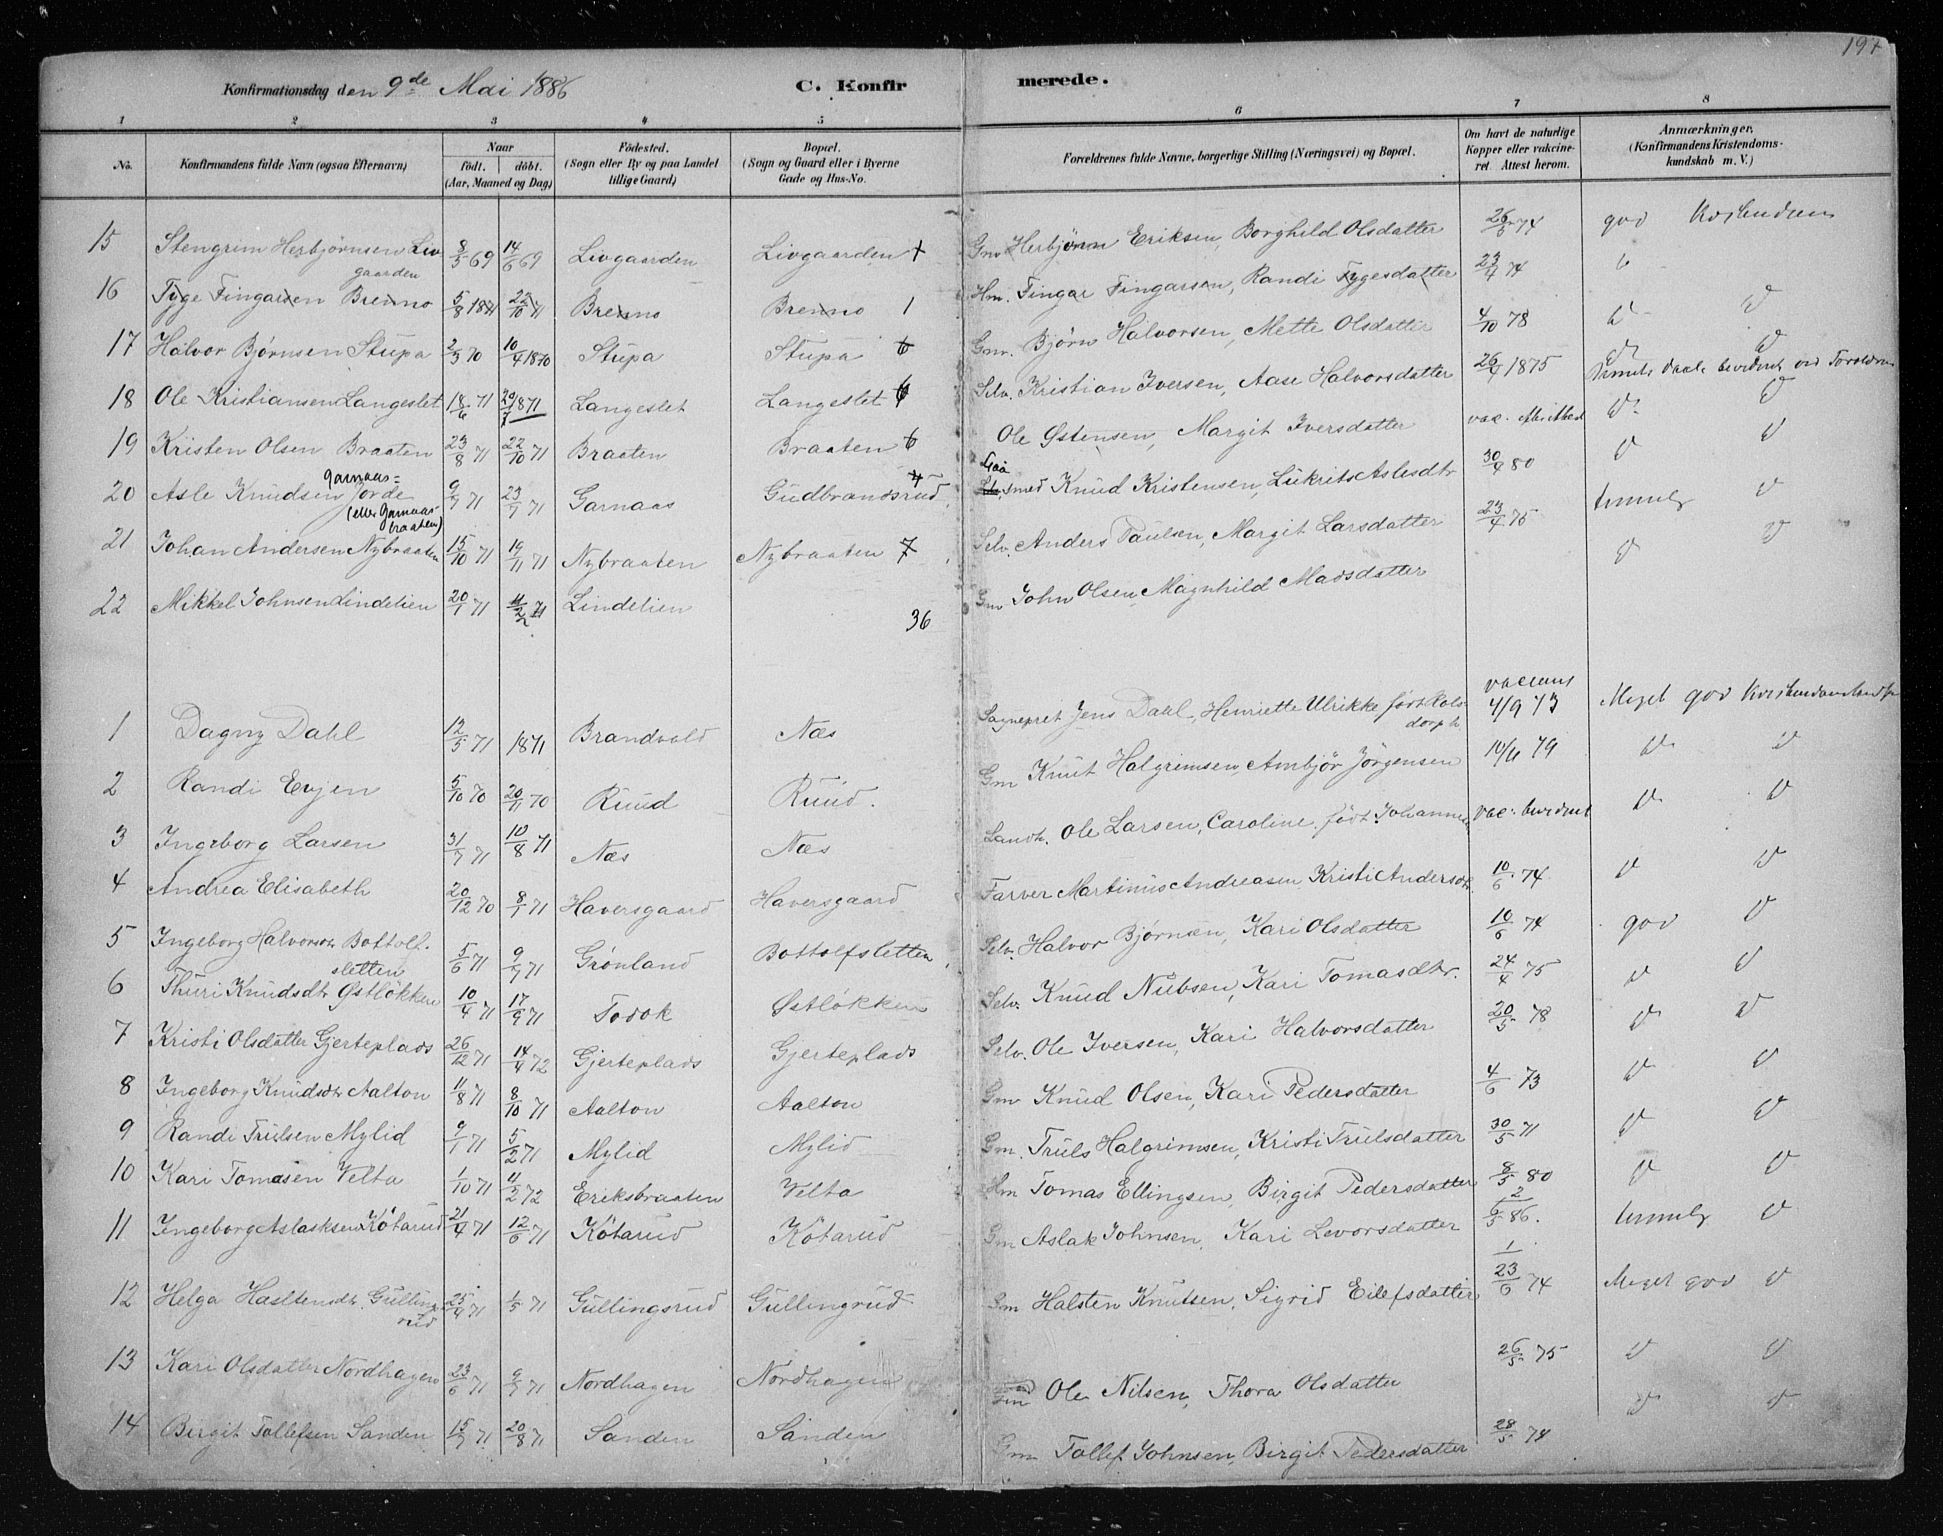 197
Konfirmationsdag den 9de Mai 1886 C. Konfirmerede.
1 2 3 4 5 6 7 8
No. Konfirmandens fulde Navn (ogsaa Efternavn) Naar født. døbt. (Aar, Maaned og Dag) Fødested. (Sogn eller By og paa Landet tillige Gaard) Bopæl. (Sogn og Gaard eller i Byerne Gade og Hus-No. Forældrenes fulde Navne, borgerlige Stilling (Næringsvei) og Bopæl. Om havt de naturlige Kopper eller vakcineret. Attest herom. Anmærkninger. (Konfirmandens Kristendomskundskab m. V.)
15 Stengrim Herbjørnsen Livgaarden 8/5 69 14/6 69 Livgaarden Livgaarden Gm Herbjørn Eriksen, Borghild Olsdatter 26/5 74 god
16 Tyge Fingarsen Brenno 5/8 1871 22/10 71 Brenno Brenno 1 Hm. Fingar Fingarsen, Randi Tygesdatter 23/4 74
17 Halvor Bjørnsen Stupa 2/3 70 10/4 1870 Stupa Stupa 6 Gm. Bjørn Halvorsen, Mette Olsdatter 4/10 78
18 Ole Kristiansen Langeslet 18/6 71 1871 Langeslet Langeslet Selv. Kristian Iversen, Aase Halvorsdatter 1875
19 Kristen Olsen Braaten 23/8 71 22/10 71 Braaten Braaten 6 Ole Østensen, Margit Iversdatter vac.
20 Asle Knudsen Garnaas-Jorde (eller Garnaasbraaten) 9/7 71 23/7 71 Garnaas Gudbrandsrud Smed Knud Kristensen, Lukrits Aslesdtr 30/4 80
21 Johan Andersen Nybraaten 15/10 71 19/11 71 Nybraaten Nybraaten 7 Selv. Anders Paulsen, Margit Larsdatter 23/4 75
22 Mikkel Johnsen Lindelien 20/1 71 Lindelien Gm John Olsen, Magnhild Madsdatter
36
1 Dagny Dahl 12/5 71 1871 Brandvold Næs Sognepret Jens Dahl, Henriette Ulrikke født 4/9 73 Meget god
2 Randi Evjen 5/10 70 20/11 70 Ruud Ruud. Gm Knut Halgrimsen, Ambjør Jørgensen 10/6 79
3 Ingeborg Larsen 31/7 71 10/8 71 Næs Næs Landh. Ole Larsen, Caroline, født Johannes vac. bevidnet
4 Andrea Elisabeth 20/12 70 8/1 71 Haversgaard Haversgaard Farver Martinius Andreasen, Kristi Andersdtr. 10/6 74
5 Ingeborg Halvorsdtr Bottolfsletten 5/6 71 9/7 71 Grønland Bottolfsletten Selv. Halvor Bjørnsen, Kari Olsdatter 10/6 74 god
6 Thuri Knudsdtr Østløkken 10/4 71 17/9 71 Todok Østløkken Selv. Knud Nubsen, Kari Tomasdtr. 24/4 75
7 Kristi Olsdatter Gjerteplads 26/12 71 14/4 72 Gjerteplads Gjerteplads Selv. Ole Iversen, Kari Halvorsdatter 20/5 78
8 Ingeborg Knudsdtr Aalton 11/8 71 8/10 71 Aalton Aalton Gm Knud Olsen, Kari Pedersdatter 4/6 73
9 Randi Trulsen Mylid 9/1 71 5/2 71 Mylid Mylid Gm. Truls Halgrimsen, Kristi Trulsdatter 30/5 71
10 Kari Tomasen Velta 1/10 71 4/2 72 Eriksbraaten Velta Hm Tomas Ellingsen, Birgit Pedersdatter 8/5 80
11 Ingeborg Aslaksen Køtarud 21/4 71 12/6 71 Køtarud Køtarud Gm Aslak Johnsen, Kari Levorsdatter 6/5 86.
12 Helga Hasltensdtr. Gullingsrud 25/4 71 1/5 71 Gullingsrud Gullingrud Gm Halsten Knutsen, Sigrid Eilefsdatter 23/6 74 Meget god
13 Kari Olsdatter Nordhagen 23/6 71 9/7 71 Nordhagen Nordhagen Gm Ole Nilsen, Thora Olsdatter 26/5 75
14 Birgit Tollefsen Sanden 15/7 71 20/8 71 Sanden Sanden Gm Tollef Johnsen, Birgit Pedersdatter 28/5 74